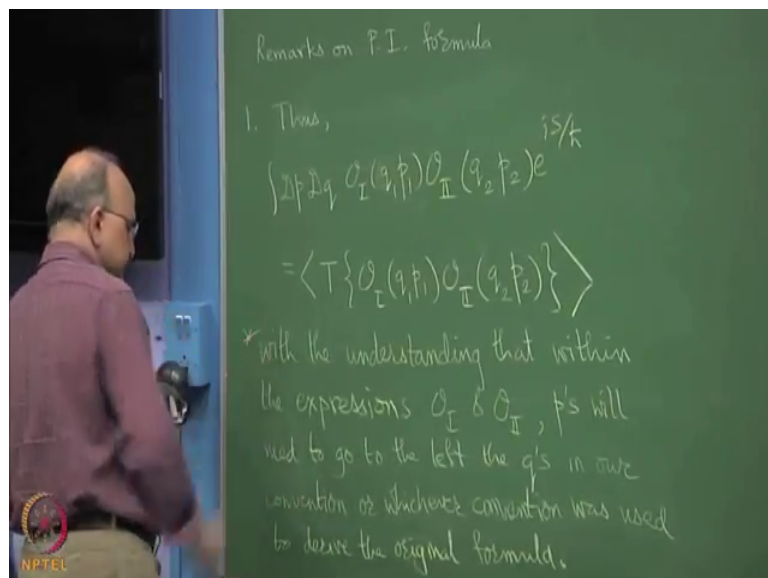 Remarks on P.I. formula
1. Thus,
∫ 𝒟p 𝒟q 𝒪_I(q₁p₁) 𝒪_II(q₂ p₂) e^{iS/ħ}
= ⟨ T { 𝒪_I(q₁p₁) 𝒪_II(q₂p₂) } ⟩
* with the understanding that within
the expressions 𝒪_I & 𝒪_II, p's will
need to go to the left the q's in our
convention or whichever convention was used
to derive the original formula.
NPTEL